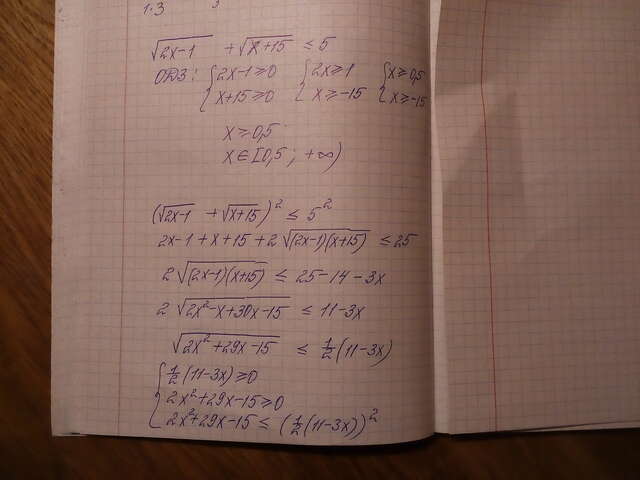 1.3 3
√(2x-1) + √(x+15) ≤ 5
ОДЗ: {2x-1≥0 {2x≥1 {x≥0,5
x+15≥0 x≥-15 x≥-15
x≥0,5
x∈[0,5; +∞)
(√(2x-1) + √(x+15))² ≤ 5²
2x-1+x+15+2√((2x-1)(x+15)) ≤ 25
2√((2x-1)(x+15)) ≤ 25-14-3x
2√(2x²-x+30x-15) ≤ 11-3x
√(2x²+29x-15) ≤ 1/2(11-3x)
{1/2(11-3x)≥0
2x²+29x-15≥0
2x²+29x-15≤(1/2(11-3x))²